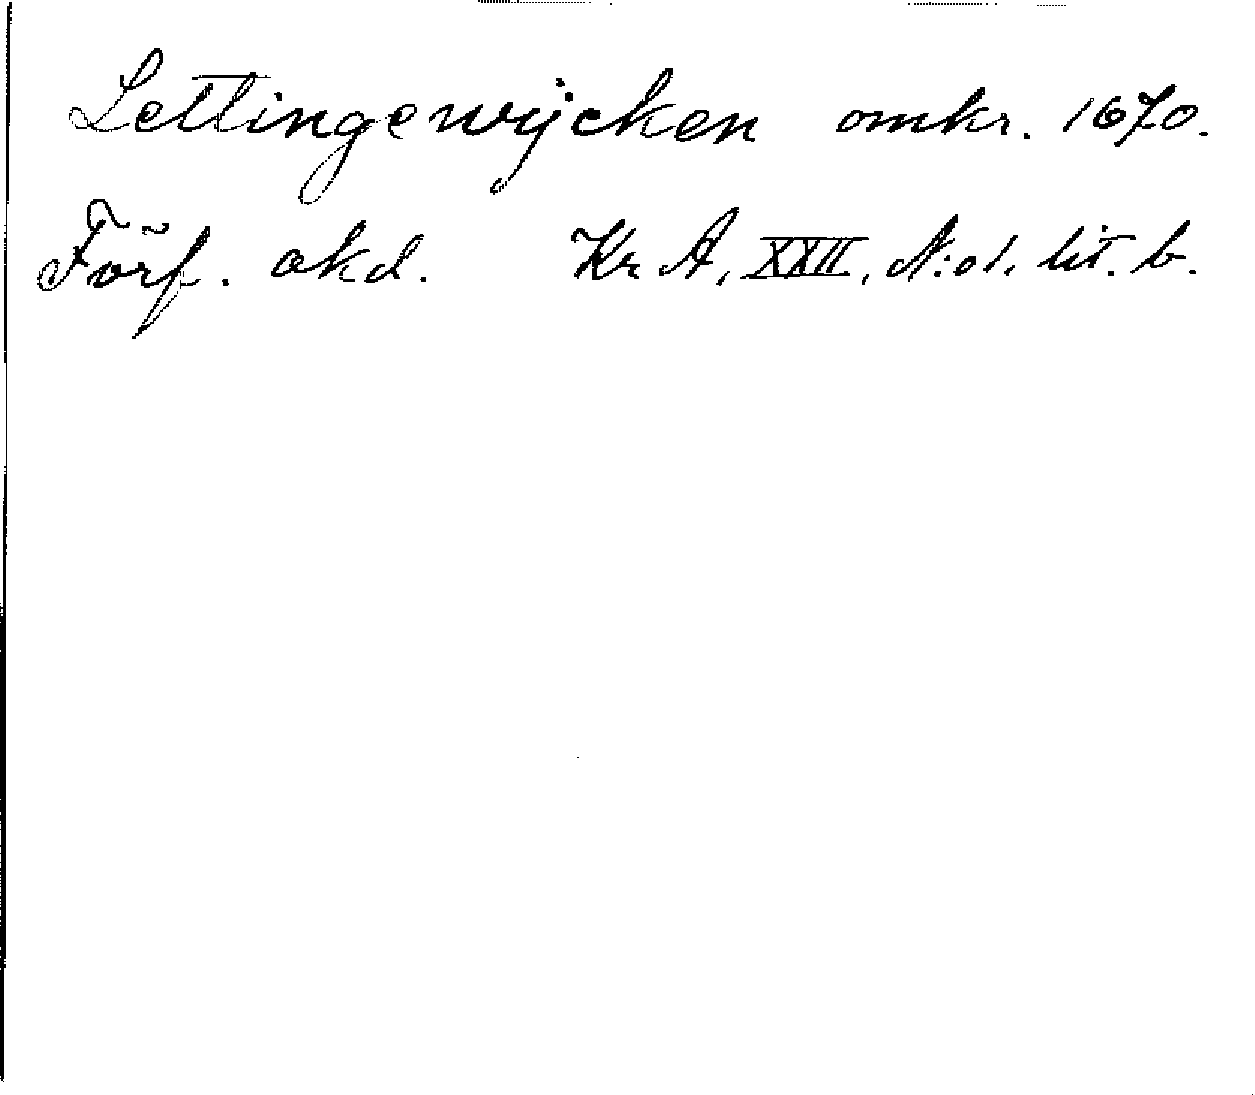 Lettingewijcken omkr. 1670.
Förf. okd. Kr A, XXII, N:o 1. lit. b.